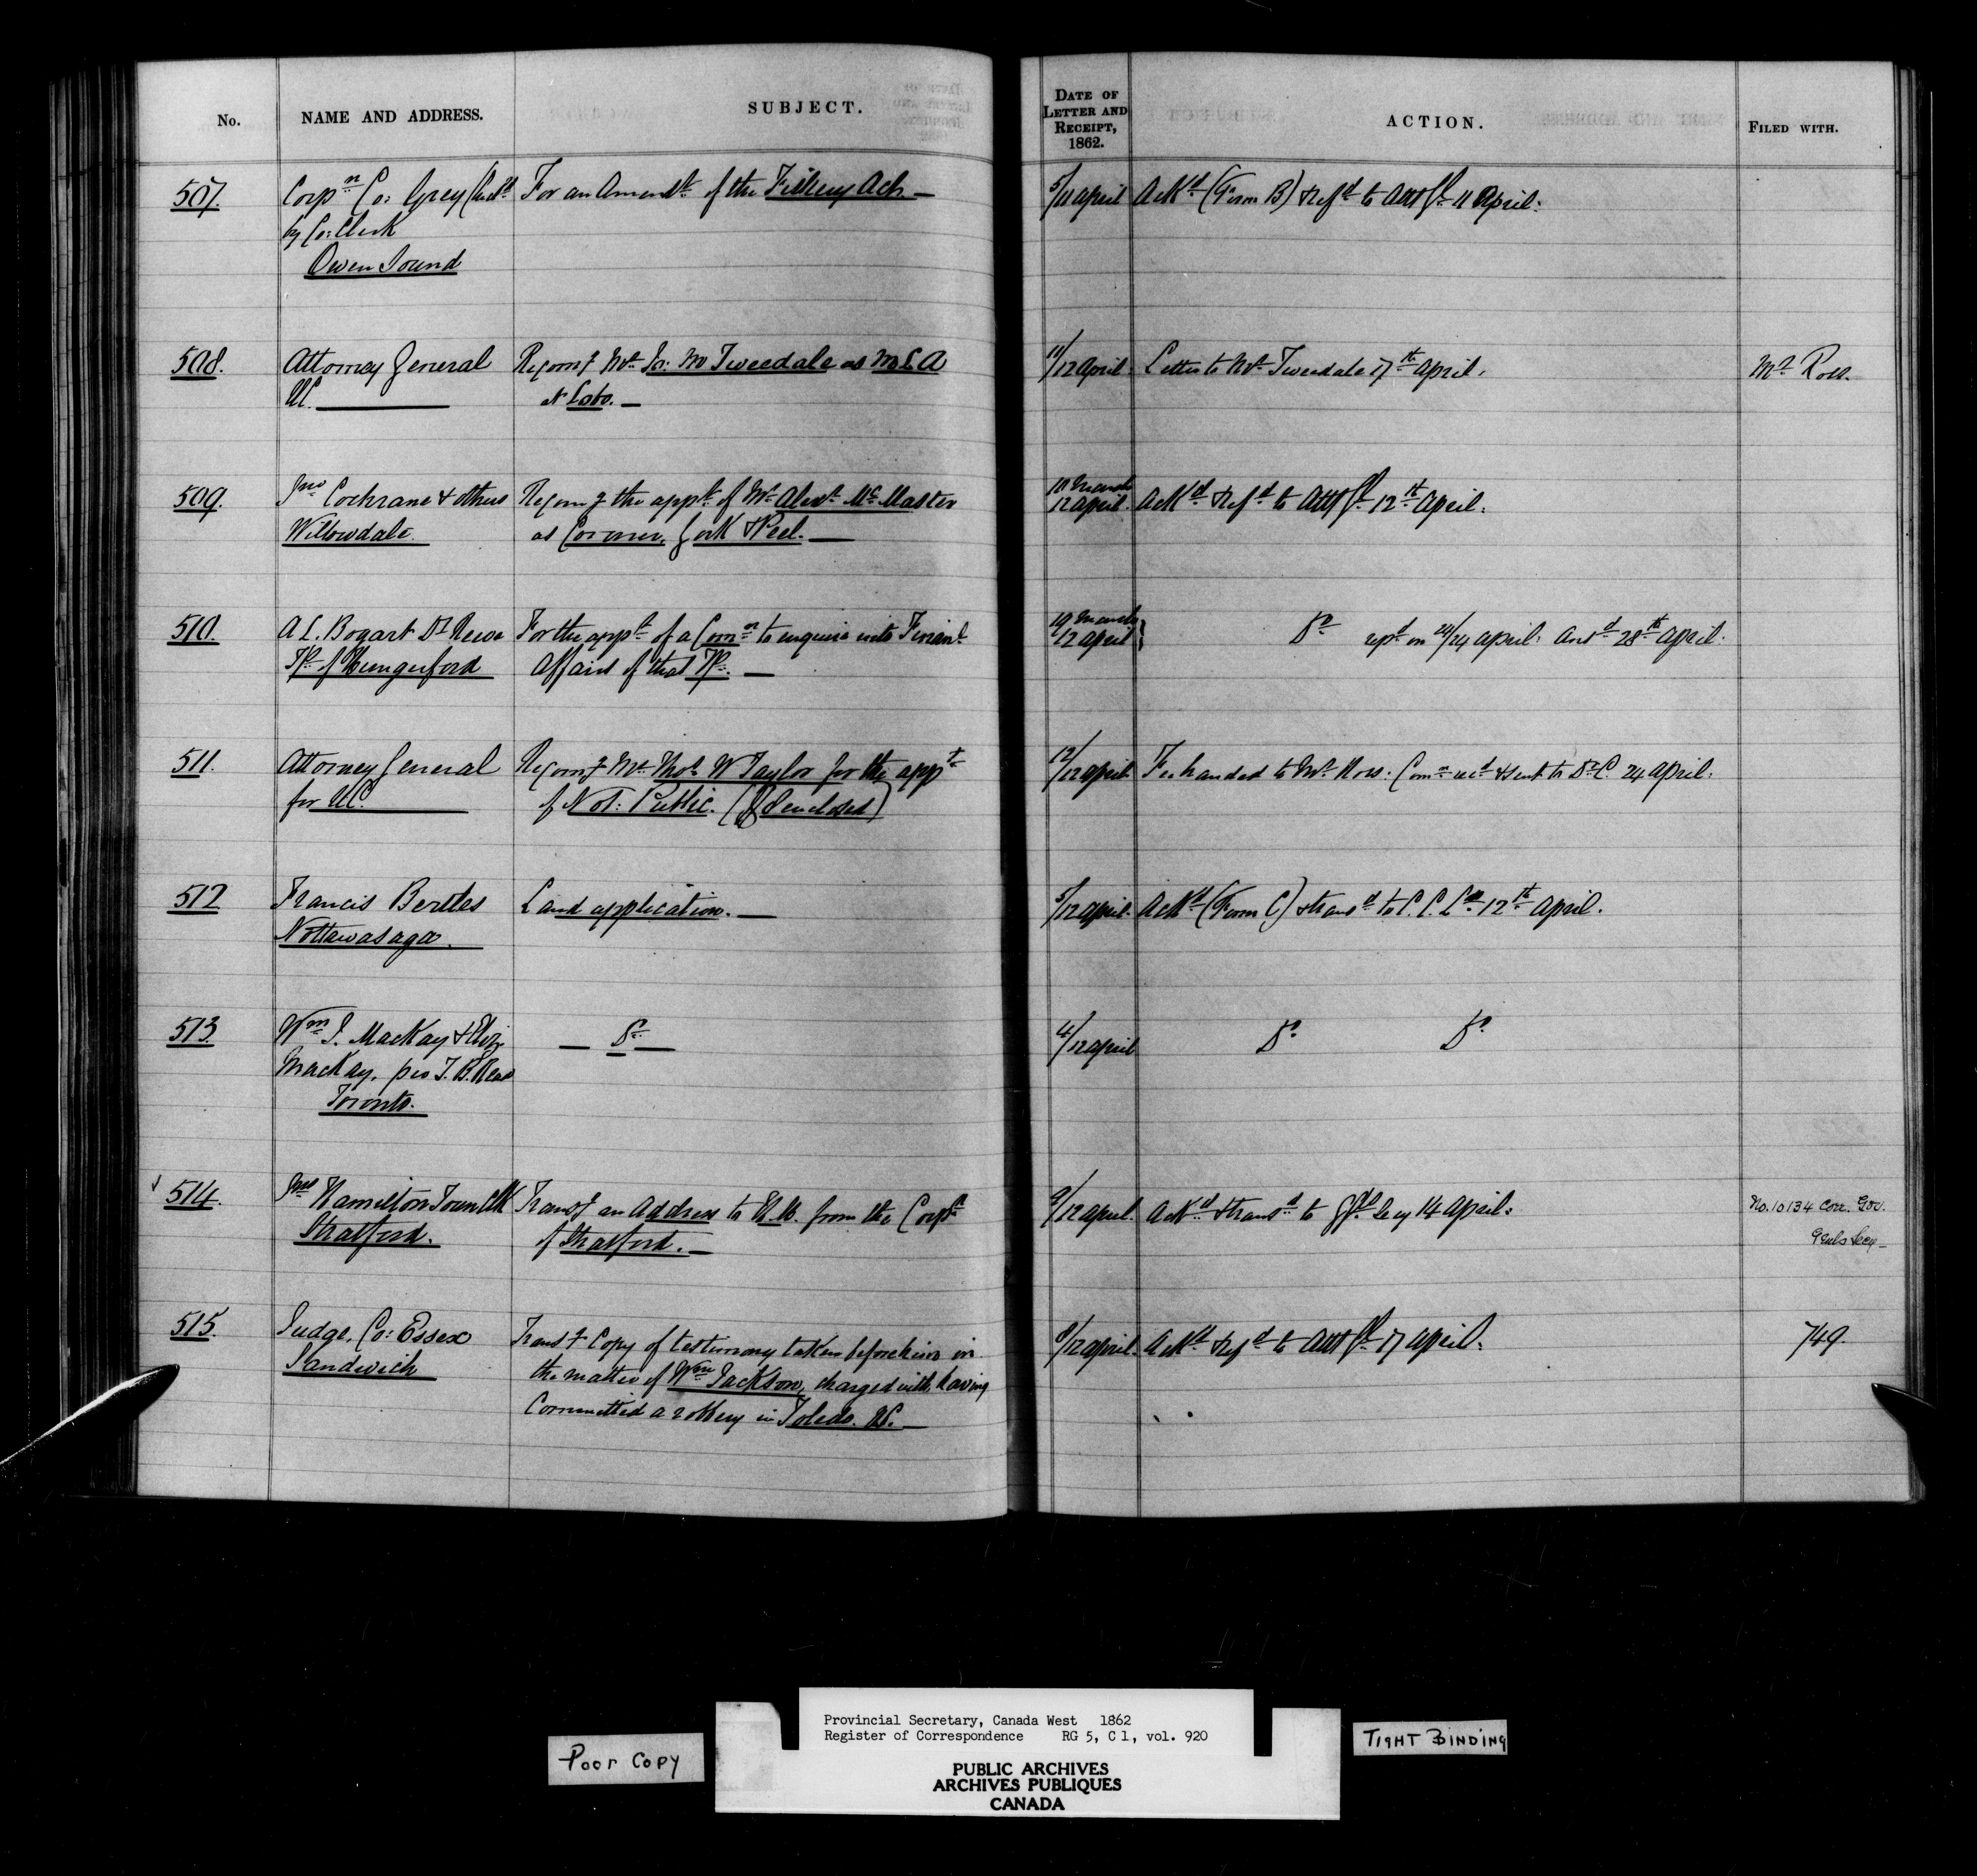 No. NAME AND ADDRESS. SUBJECT. DATE OF LETTER AND RECEIPT, 1862. ACTION. FILED WITH.
507. Corpn Co: Grey For an Amendt of the Fishery Act. — 5/11 April Ackd (Form B) & refd to Atty Gl 11 April.
by Co: Clerk
Owen Sound
508. Attorney General Recomg Mr Jas: McTweedale as M L A 11/12 April. Letter to Mr Tweedale 17th April. Mr Ross.
UC. N Lobo. —
509. Jno Cochrane & others Recomg the appt of Mr Alexr McMaster 10 March Ackd & refd to Atty Gl 12th April.
Willowdale. as Coroner, York & Peel. — 12 April.
510. A L. Bogart Dy Reeve For the appt of a Comn to enquire into Financl 19 March Do repd on 24/24 April. Ansd 28th April.
Tp. of Hungerford Affairs of that Tp. — 12 April
511. Attorney General Recomg Mr Thos W Taylor for the appt 12/12 April Fee handed to Mr Ross. Comn recd & sent to Dy C. 24 April.
for UC. of Not: Public. ( enclosed)
512 Francis Bertles Land application. — 5/12 April. Ackd (Form C) & transd to C. C. Lds 12th April.
Nottawasaga.
513 Wm J. MacKay & Eliz — Do — 4/12 April Do Do
MacKay, per J. B. Read
Toronto.
514. Jno Hamilton Town Clk Transg an Address to H.M. from the Corpn 9/12 April. Ackd & transd to G Gls Secy 14 April. No. 10134 Corr. Gov.
Stratford. of Stratford. — Genls Secy —
515. Judge, Co: Essex Transg Copy of testimony taken before him in 8/12 April. Ackd & refd to Atty Gl 17 April. 749.
Sandwich the matter of Wm Jackson, charged with having
Committed a robbery in Toledo. US. —
Poor Copy
Provincial Secretary, Canada West 1862
Register of Correspondence RG 5, C 1, vol. 920
PUBLIC ARCHIVES
ARCHIVES PUBLIQUES
CANADA
TIGHT BINDING